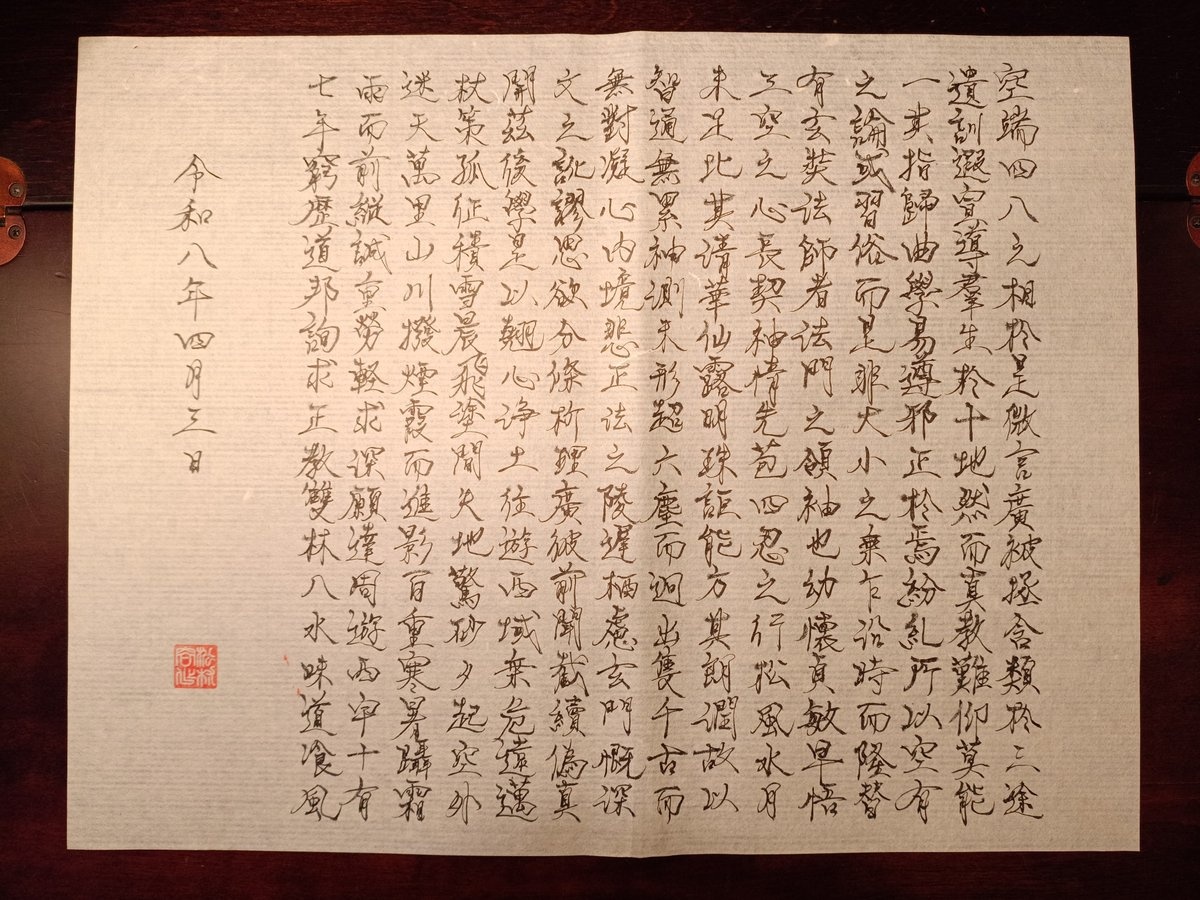 空端四八之相於是微言廣被拯含類於三途
遺訓遐宣導羣生於十地然而真教難仰莫能
一其指歸曲學易遵邪正於焉紛糺所以空有
之論或習俗而是非大小之乗乍沿時而隆替
有玄奘法師者法門之領袖也幼懷貞敏早悟
三空之心長契神情先苞四忍之行松風水月
未足比其清華仙露明珠詎能方其朗潤故以
智通無累神測未形超六塵而迥出隻千古而
無對凝心内境悲正法之陵遲栖慮玄門慨深
文之訛謬思欲分條析理廣彼前聞截續偽真
開茲後學是以翹心浄土往遊西域乗危遠邁
杖策孤征積雪晨飛塗間失地驚砂夕起空外
迷天萬里山川撥煙霞而進影百重寒暑躡霜
雨而前縱誠重勞軽求深願達周遊西宇十有
七年窮歴道邦詢求正教雙林八水味道飡風
令和八年四月三日